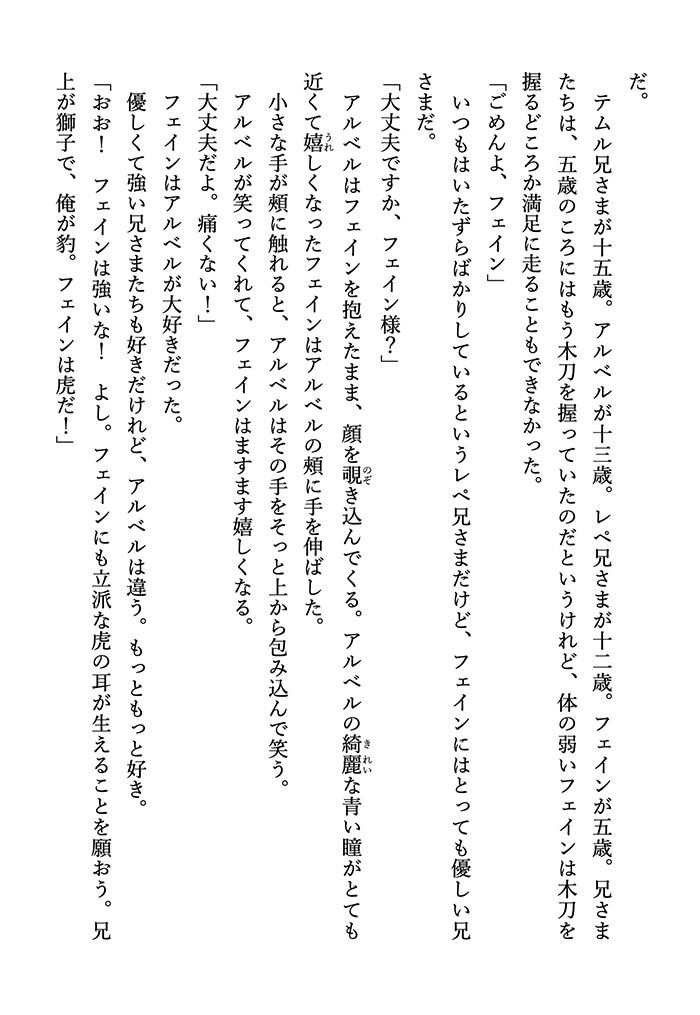 だ。
　テムル兄さまが十五歳。アルベルが十三歳。レペ兄さまが十二歳。フェインが五歳。兄さま
たちは、五歳のころにはもう木刀を握っていたのだというけれど、体の弱いフェインは木刀を
握るどころか満足に走ることもできなかった。
「ごめんよ、フェイン」
　いつもはいたずらばかりしているというレペ兄さまだけど、フェインにはとっても優しい兄
さまだ。
「大丈夫ですか、フェイン様？」
　アルベルはフェインを抱えたまま、顔を覗き込んでくる。アルベルの綺麗な青い瞳がとても
近くて嬉しくなったフェインはアルベルの頰に手を伸ばした。
　小さな手が頰に触れると、アルベルはその手をそっと上から包み込んで笑う。
　アルベルが笑ってくれて、フェインはますます嬉しくなる。
「大丈夫だよ。痛くない！」
　フェインはアルベルが大好きだった。
　優しくて強い兄さまたちも好きだけれど、アルベルは違う。もっともっと好き。
「おお！　フェインは強いな！　よし。フェインにも立派な虎の耳が生えることを願おう。兄
上が獅子で、俺が豹。フェインは虎だ！」